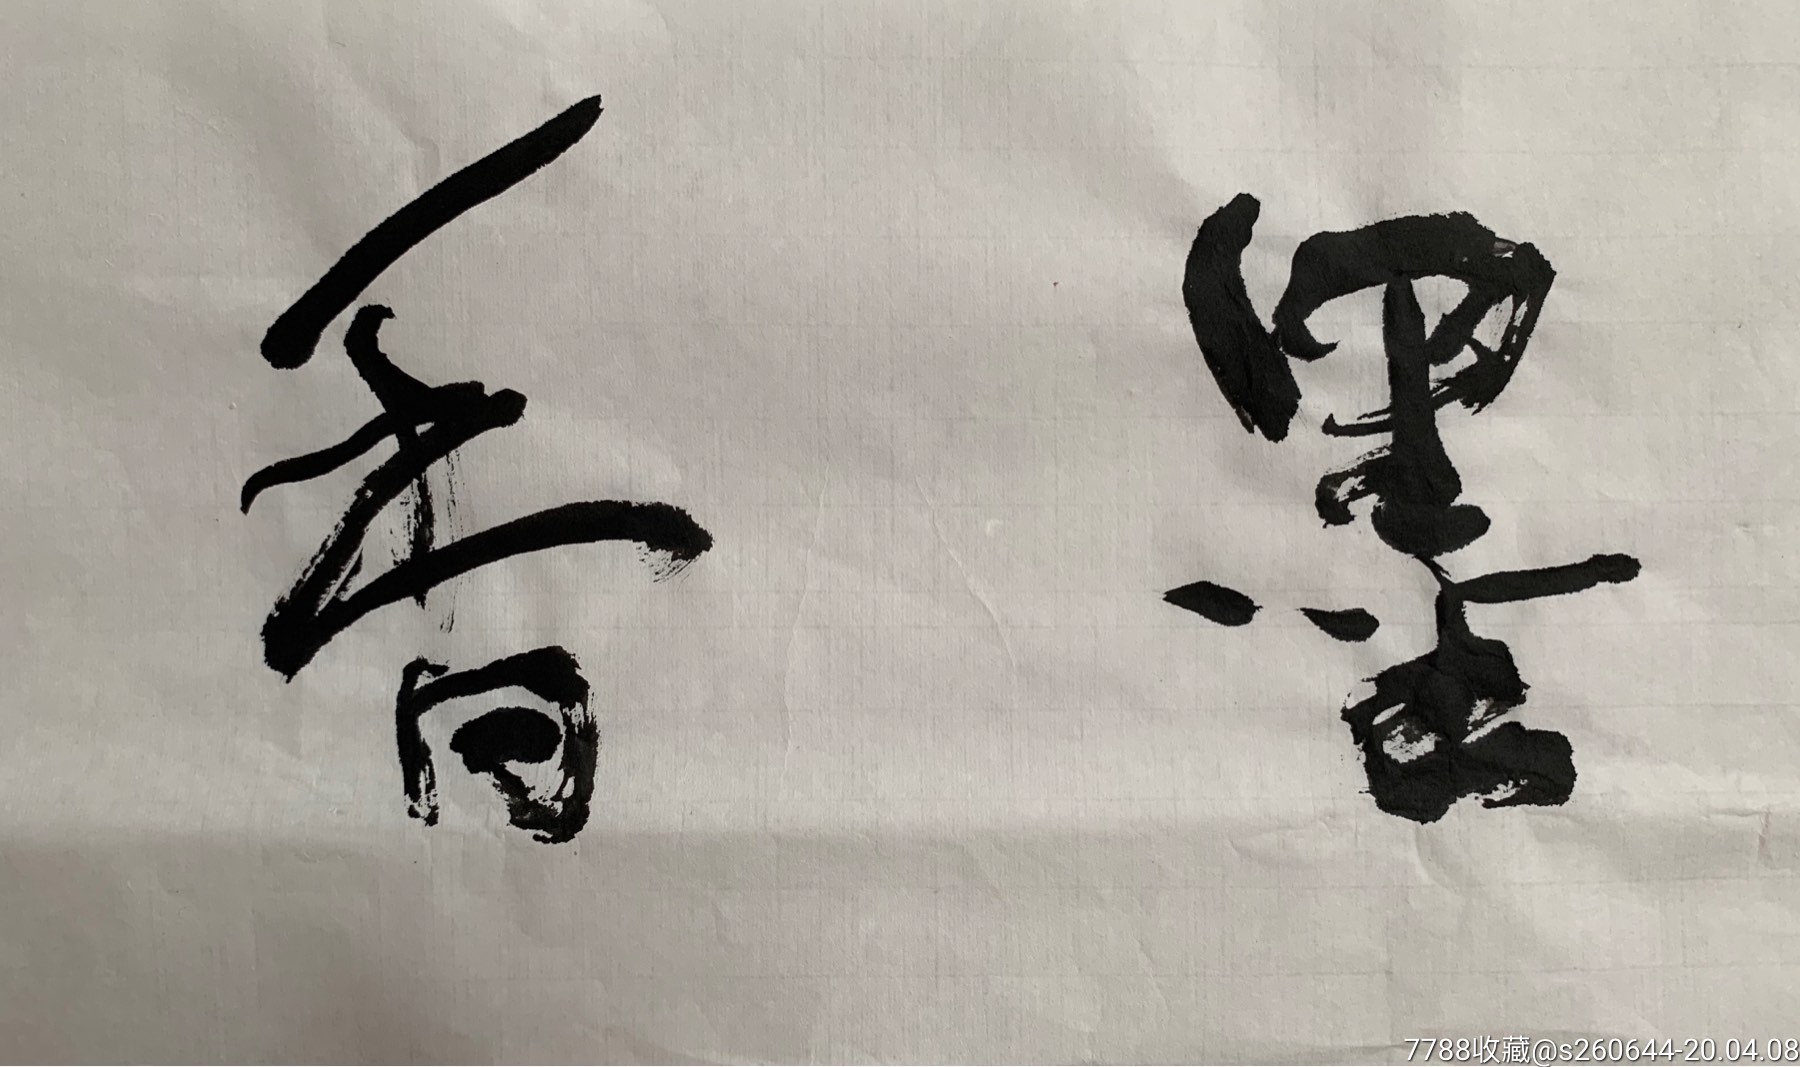 墨香
7788收藏@s260644-20.04.08